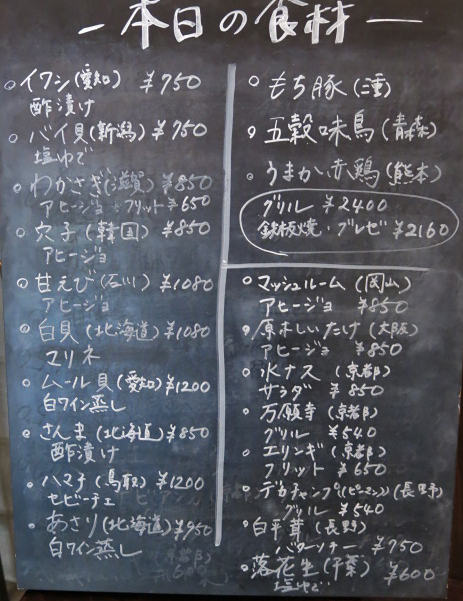 本日の食材
○イワシ(愛知) ¥750
酢漬け
○バイ貝(新潟) ¥750
塩ゆで
○わかさぎ(滋賀) ¥850
アヒージョ・フリット ¥650
○穴子(韓国) ¥850
アヒージョ
○甘えび(石川) ¥1080
アヒージョ
○白貝(北海道) ¥1080
マリネ
○ムール貝(愛知) ¥1200
白ワイン蒸し
○さんま(北海道) ¥850
酢漬け
○ハマチ(鳥取) ¥1200
セビーチェ
○あさり(北海道) ¥950
白ワイン蒸し
○もち豚(三重)
○五穀味鳥(青森)
○うまか赤鶏(熊本)
グリル ¥2400
鉄板焼・ブレゼ ¥2160
○マッシュルーム(岡山)
アヒージョ ¥850
○原木しいたけ(大阪)
アヒージョ ¥850
○水ナス(京都)
サラダ ¥850
○万願寺(京都)
グリル ¥540
○エリンギ(京都)
フリット ¥650
○デカチャンプ(ピーマン)(長野)
グリル ¥540
○白平茸(長野)
バターソテー ¥750
○落花生(千葉) ¥600
塩ゆで